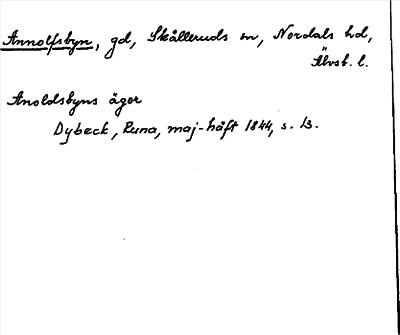 Annolfsbyn, gd, Skålleruds sn, Nordals hd,
Älvsb. l.
Anoldsbyns ägor
Dybeck, Runa, maj-häft 1844, s. 13.